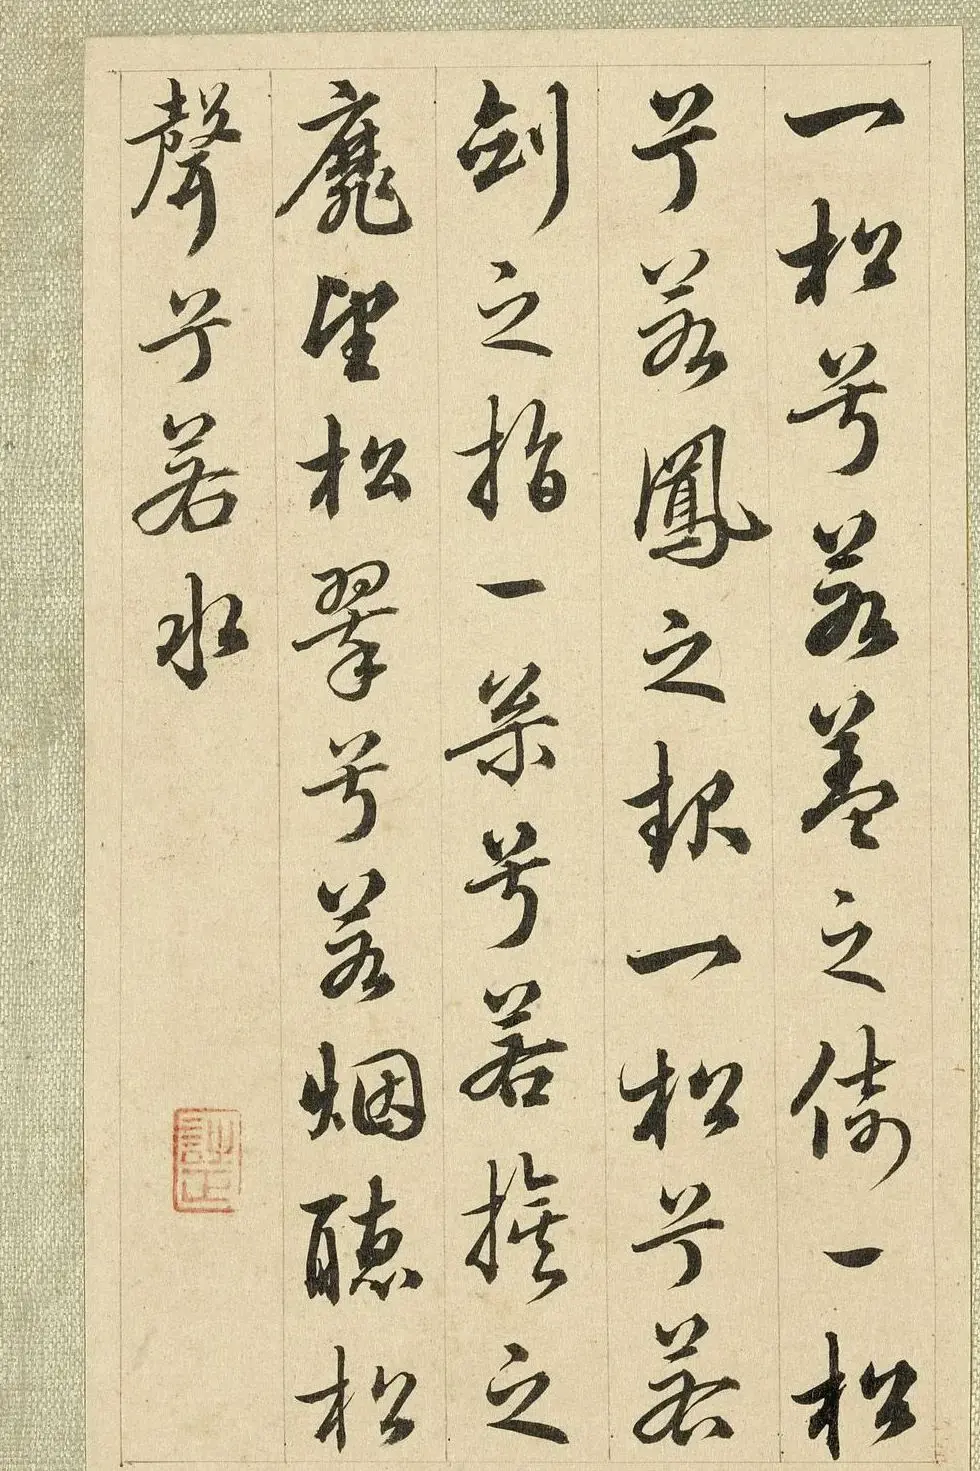 一松兮若盖之倚一松
兮若鳳之欹一松兮若
劍之指一菜兮若旌之
麾望松翠兮若烟聽松
聲兮若水